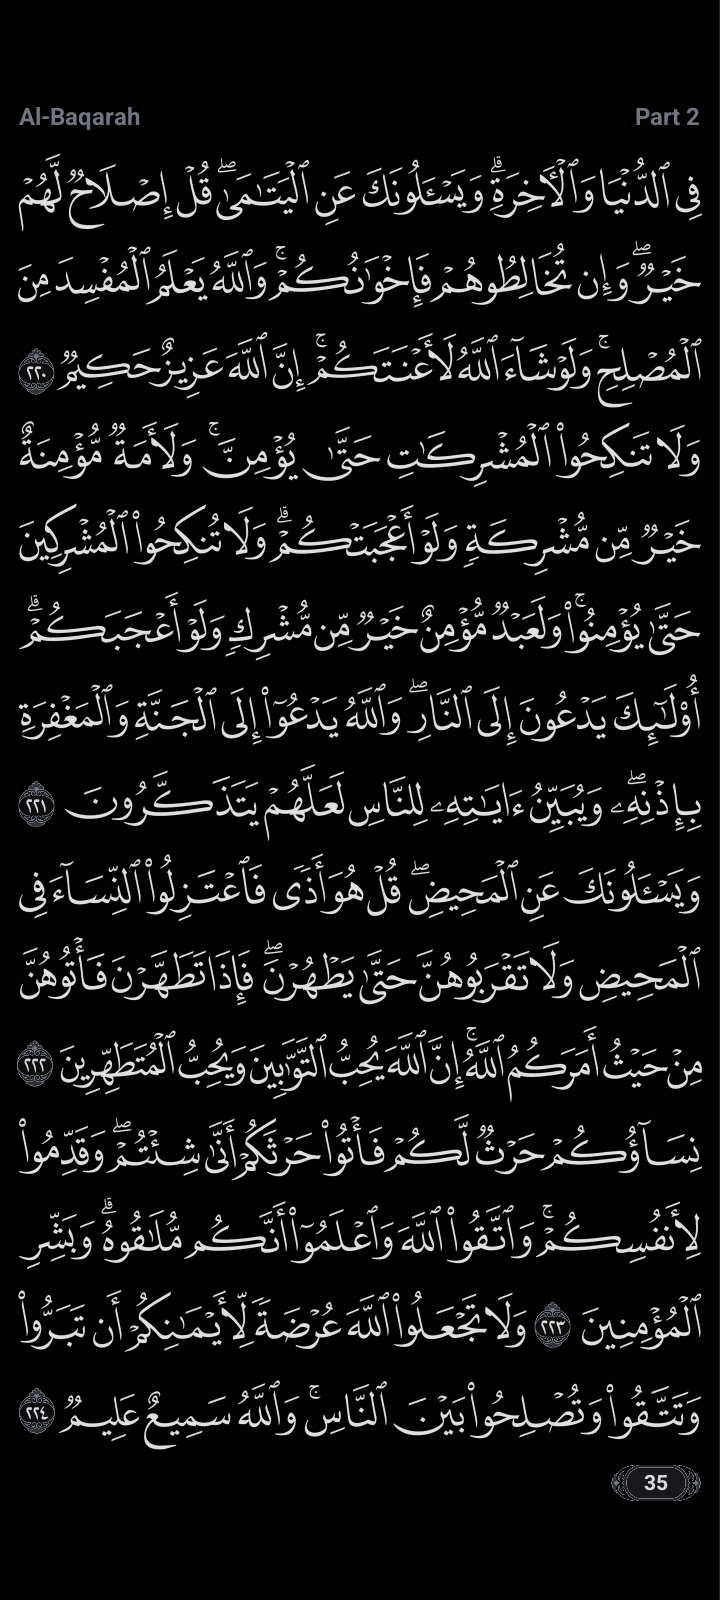 Al-Baqarah Part 2
فِي ٱلدُّنۡيَا وَٱلۡأٓخِرَةِۗ وَيَسۡـَٔلُونَكَ عَنِ ٱلۡيَتَٰمَىٰۖ قُلۡ إِصۡلَاحٞ لَّهُمۡ
خَيۡرٞۖ وَإِن تُخَالِطُوهُمۡ فَإِخۡوَٰنُكُمۡۚ وَٱللَّهُ يَعۡلَمُ ٱلۡمُفۡسِدَ مِنَ
ٱلۡمُصۡلِحِۚ وَلَوۡ شَآءَ ٱللَّهُ لَأَعۡنَتَكُمۡۚ إِنَّ ٱللَّهَ عَزِيزٌ حَكِيمٞ ٢٢٠
وَلَا تَنكِحُواْ ٱلۡمُشۡرِكَٰتِ حَتَّىٰ يُؤۡمِنَّۚ وَلَأَمَةٞ مُّؤۡمِنَةٌ
خَيۡرٞ مِّن مُّشۡرِكَةٖ وَلَوۡ أَعۡجَبَتۡكُمۡۗ وَلَا تُنكِحُواْ ٱلۡمُشۡرِكِينَ
حَتَّىٰ يُؤۡمِنُواْۚ وَلَعَبۡدٞ مُّؤۡمِنٌ خَيۡرٞ مِّن مُّشۡرِكٖ وَلَوۡ أَعۡجَبَكُمۡۗ
أُوْلَٰٓئِكَ يَدۡعُونَ إِلَى ٱلنَّارِۖ وَٱللَّهُ يَدۡعُوٓاْ إِلَى ٱلۡجَنَّةِ وَٱلۡمَغۡفِرَةِ
بِإِذۡنِهِۦۖ وَيُبَيِّنُ ءَايَٰتِهِۦ لِلنَّاسِ لَعَلَّهُمۡ يَتَذَكَّرُونَ ٢٢١
وَيَسۡـَٔلُونَكَ عَنِ ٱلۡمَحِيضِۖ قُلۡ هُوَ أَذٗى فَٱعۡتَزِلُواْ ٱلنِّسَآءَ فِي
ٱلۡمَحِيضِ وَلَا تَقۡرَبُوهُنَّ حَتَّىٰ يَطۡهُرۡنَۖ فَإِذَا تَطَهَّرۡنَ فَأۡتُوهُنَّ
مِنۡ حَيۡثُ أَمَرَكُمُ ٱللَّهُۚ إِنَّ ٱللَّهَ يُحِبُّ ٱلتَّوَّٰبِينَ وَيُحِبُّ ٱلۡمُتَطَهِّرِينَ ٢٢٢
نِسَآؤُكُمۡ حَرۡثٞ لَّكُمۡ فَأۡتُواْ حَرۡثَكُمۡ أَنَّىٰ شِئۡتُمۡۖ وَقَدِّمُواْ
لِأَنفُسِكُمۡۚ وَٱتَّقُواْ ٱللَّهَ وَٱعۡلَمُوٓاْ أَنَّكُم مُّلَٰقُوهُۗ وَبَشِّرِ
ٱلۡمُؤۡمِنِينَ ٢٢٣ وَلَا تَجۡعَلُواْ ٱللَّهَ عُرۡضَةٗ لِّأَيۡمَٰنِكُمۡ أَن تَبَرُّواْ
وَتَتَّقُواْ وَتُصۡلِحُواْ بَيۡنَ ٱلنَّاسِۚ وَٱللَّهُ سَمِيعٌ عَلِيمٞ ٢٢٤
35